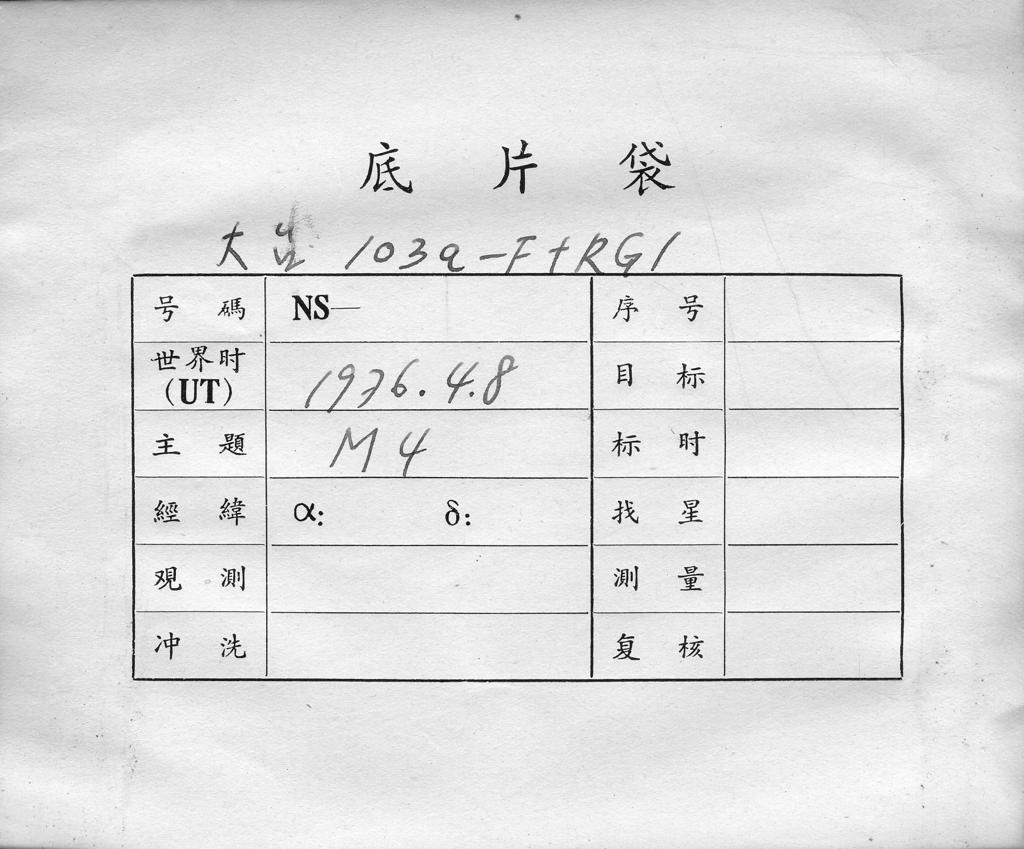 底片袋
大 103a-F+RG1
号碼 NS— 序号
世界时(UT) 1976.4.8 目标
主題 M4 标时
經緯 α: δ: 找星
观測 測量
冲洗 复核